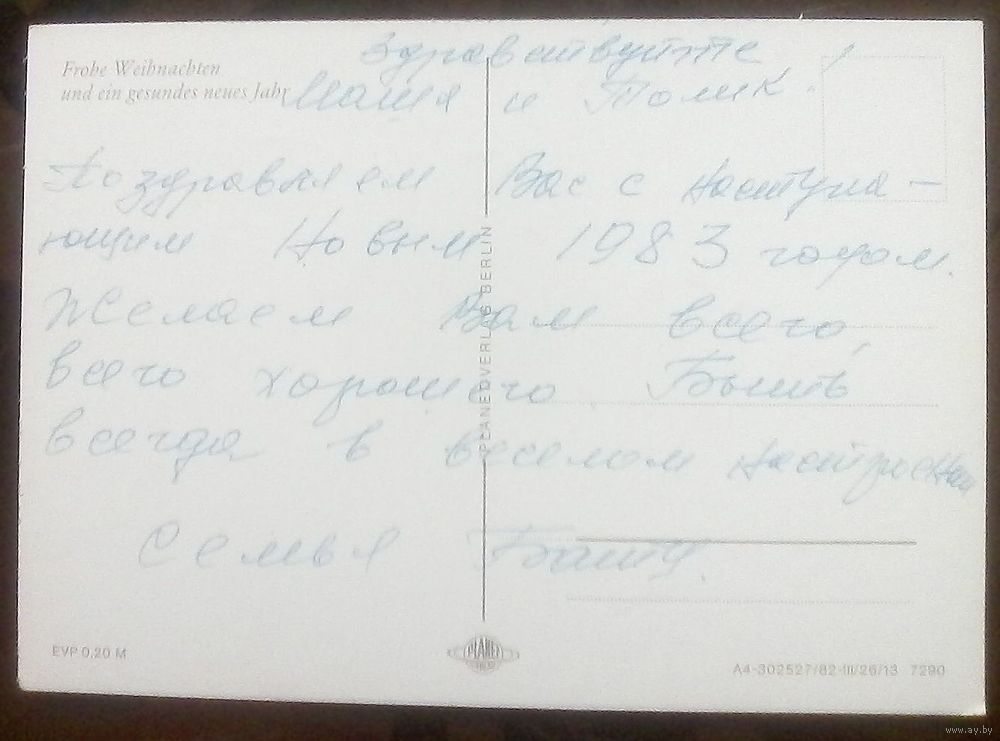 Frohe Weihnachten
und ein gesundes neues Jahr
Здравствуйте
Маша и Толик!
Поздравляем Вас с наступа-
ющим Новым 1983 годом.
Желаем Вам всего,
всего хорошего. Быть
всегда в веселом настроении
Семья
PLANET-VERLAG BERLIN
EVP 0,20 M
PLANET
A4-302527/82-III/26/13 7290
www.ay.by